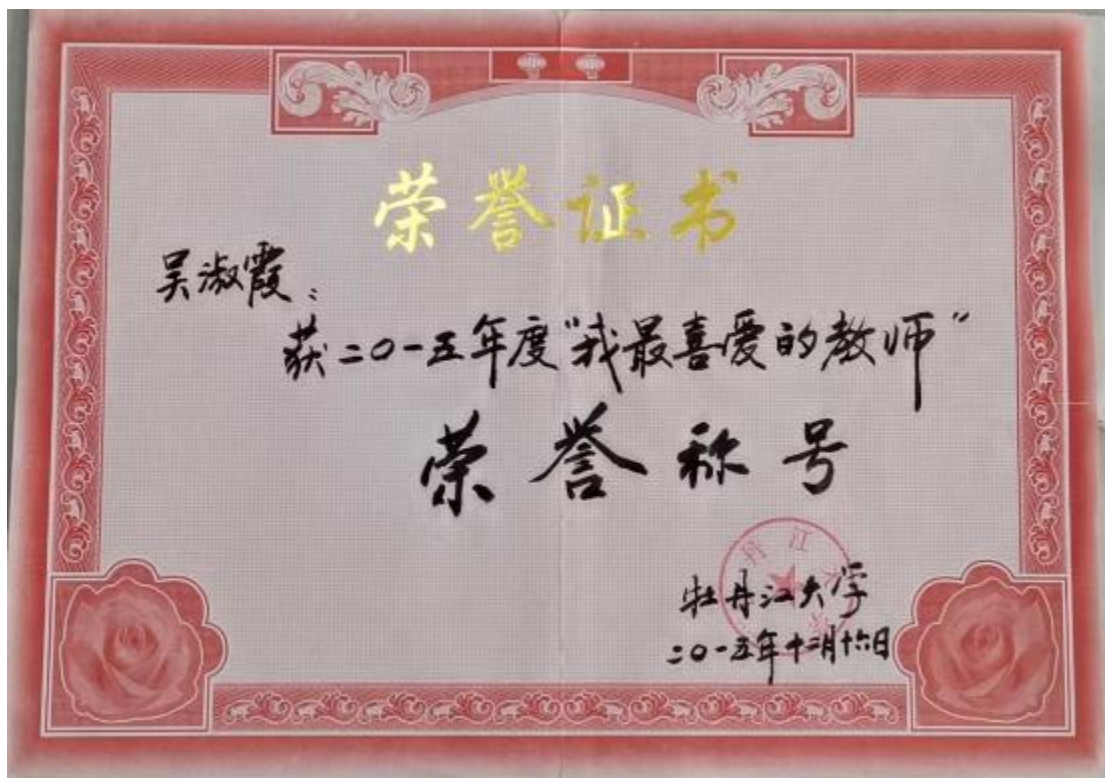 荣誉证书
吴淑霞:
获二0一五年度"我最喜爱的教师"
荣誉称号
牡丹江大学
二0一五年十二月十六日